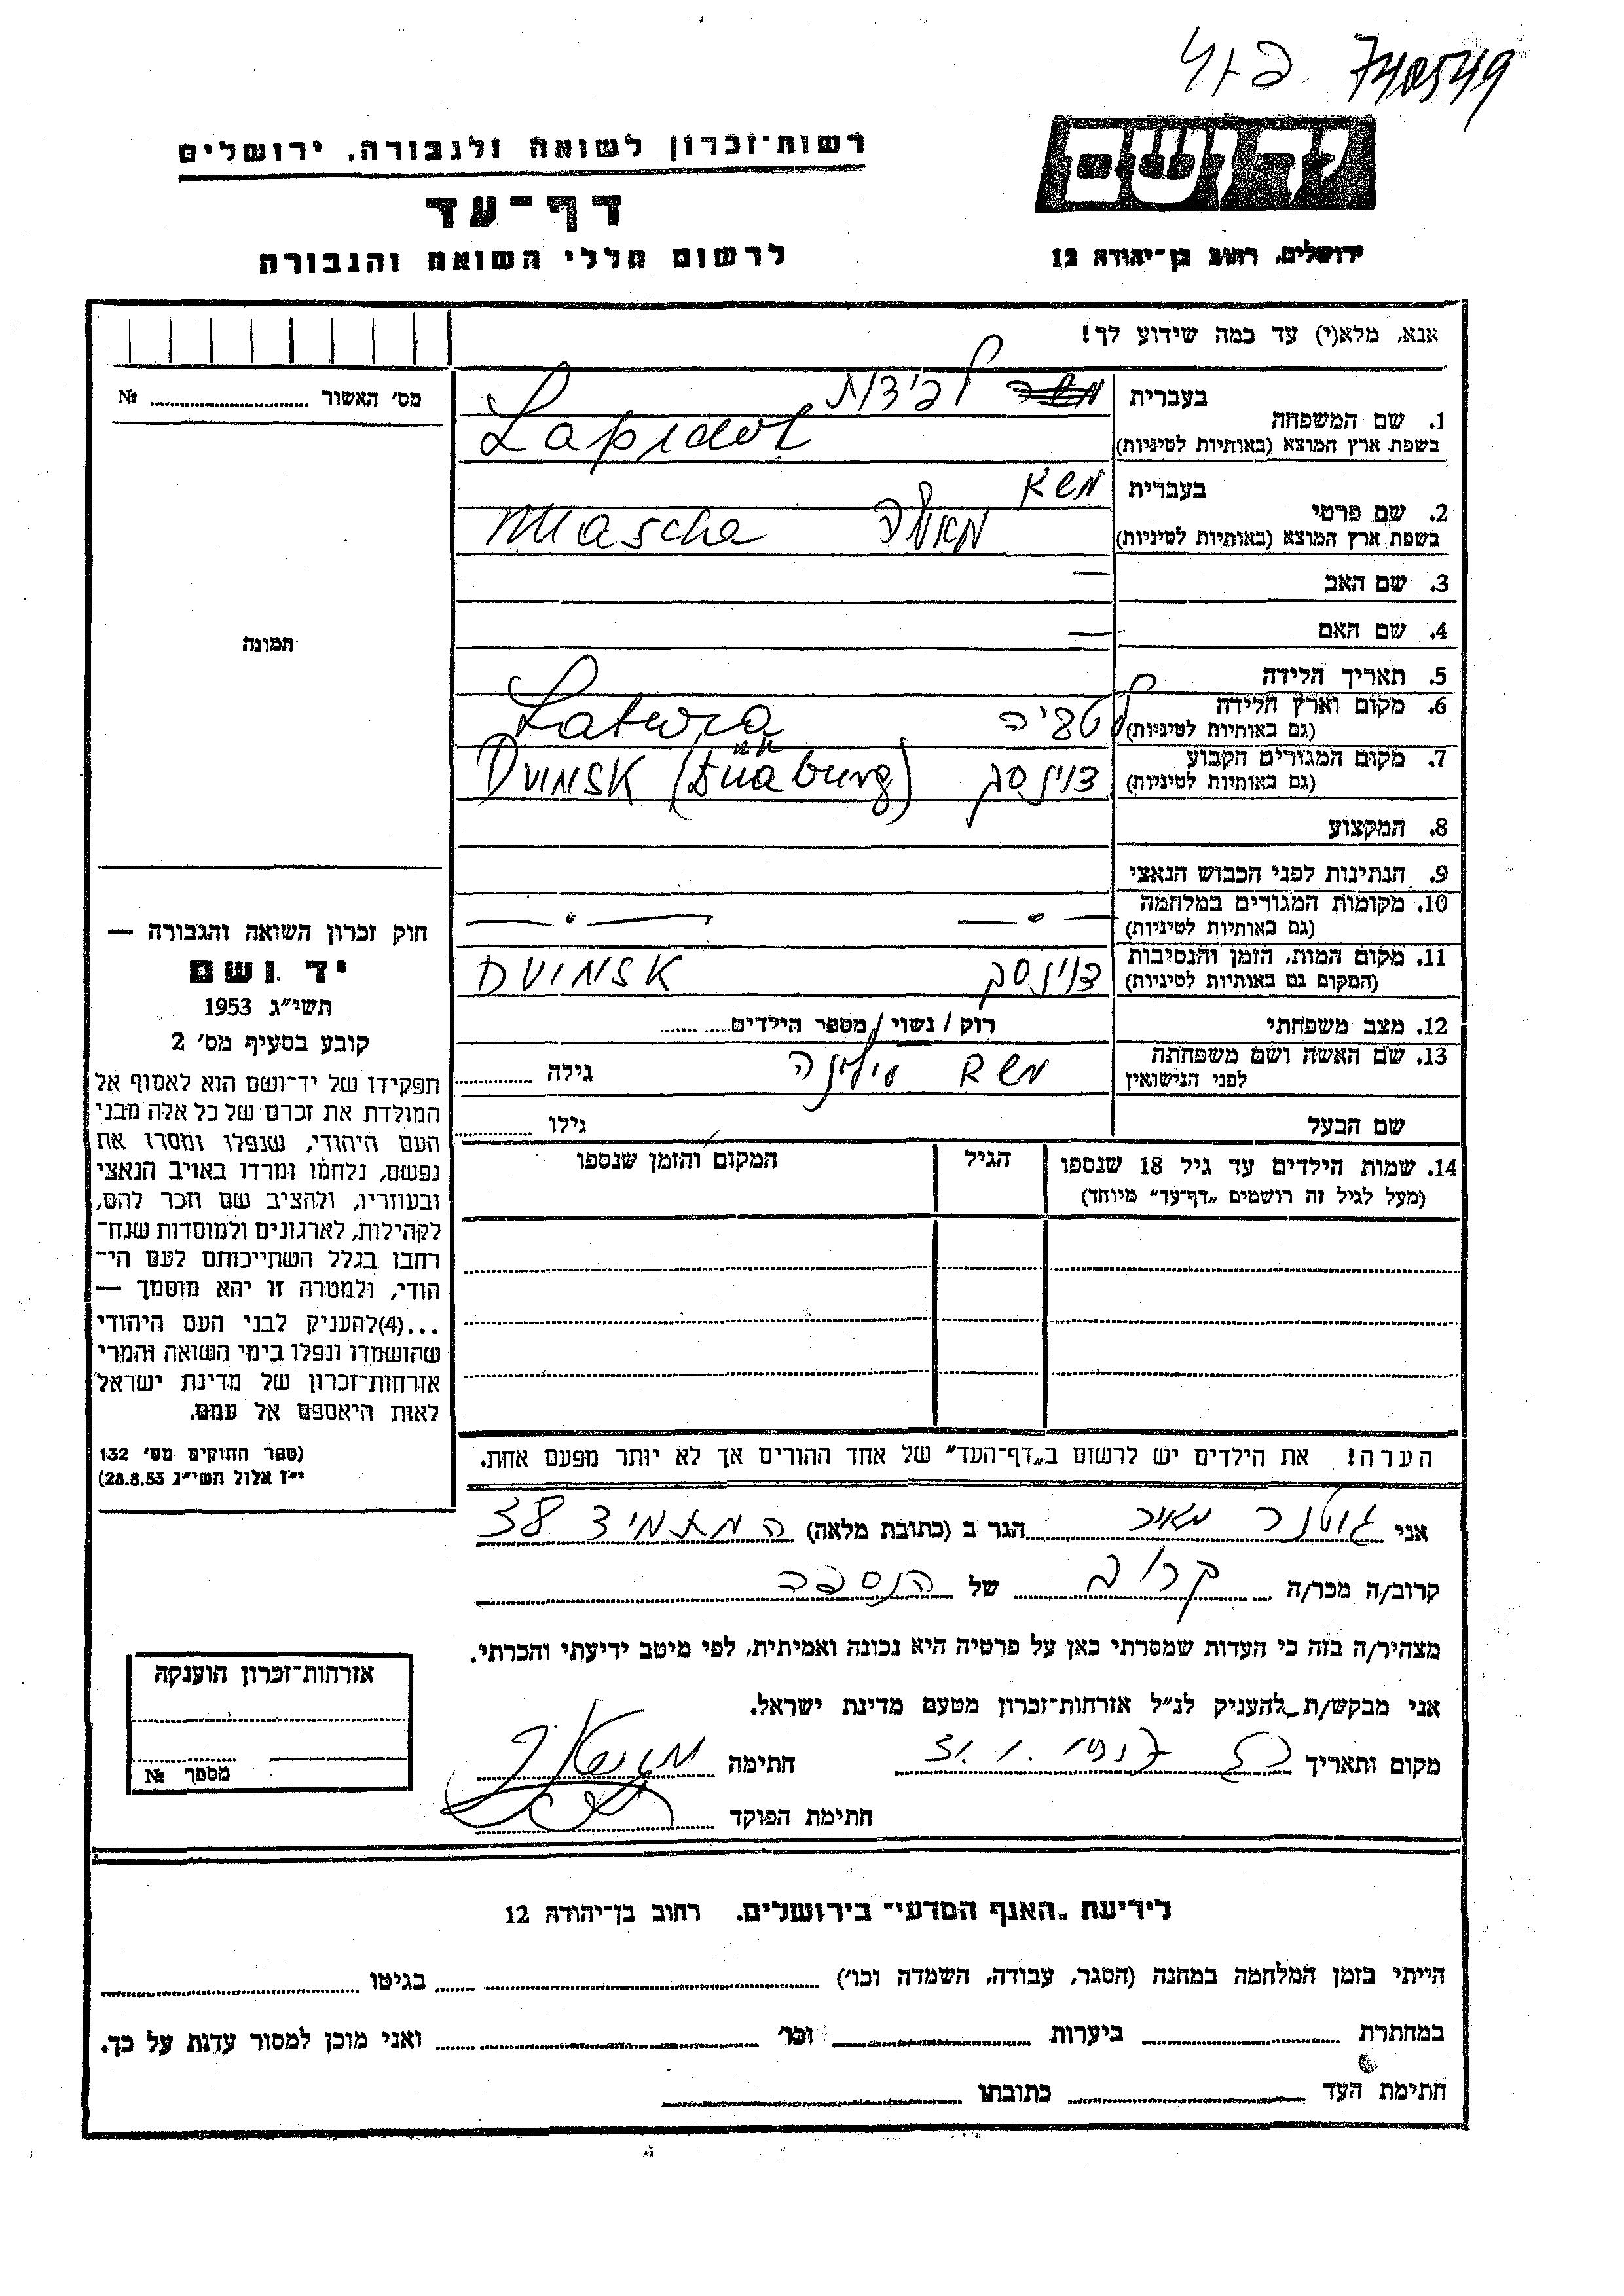 740549
יד ושם
רשות־זכרון לשואה ולגבורה, ירושלים
דף־עד
ירושלים, רחוב בן־יהודה 12
לרשום חללי השואה והגבורה
אנא, מלא(י) עד כמה שידוע לך!
מס' האשור № 
1. שם המשפחה
בעברית לפידות
בשפת ארץ המוצא (באותיות לטיניות) Lapidot
2. שם פרטי
בעברית משא
בשפת ארץ המוצא (באותיות לטיניות) Mascha
3. שם האב —
4. שם האם —
תמונה
5. תאריך הלידה
6. מקום וארץ הלידה
(גם באותיות לטיניות) לטביה Latwia
7. מקום המגורים הקבוע
(גם באותיות לטיניות) דוינסק DVINSK
8. המקצוע
9. הנתינות לפני הכבוש הנאצי
10. מקומות המגורים במלחמה
(גם באותיות לטיניות)
11. מקום המות, הזמן והנסיבות
(המקום גם באותיות לטיניות) דוינסק DVINSK
12. מצב משפחתי רוק / נשוי / מספר הילדים
13. שם האשה ושם משפחתה
לפני הנישואין משא גילה
שם הבעל גילו
14. שמות הילדים עד גיל 18 שנספו הגיל המקום והזמן שנספו
(מעל לגיל זה רושמים „דף־עד” מיוחד)
חוק זכרון השואה והגבורה —
יד ושם
תשי״ג 1953
קובע בסעיף מס' 2
תפקידו של יד־ושם הוא לאסוף אל
המולדת את זכרם של כל אלה מבני
העם היהודי, שנפלו ומסרו את
נפשם, נלחמו ומרדו באויב הנאצי
ובעוזריו, ולהציב שם וזכר להם,
לקהילות, לארגונים ולמוסדות שנח־
רבו בגלל השתייכותם לעם הי־
הודי, ולמטרה זו יהא מוסמך —
...(4)להעניק לבני העם היהודי
שהושמדו ונפלו בימי השואה והמרי
אזרחות־זכרון של מדינת ישראל
לאות היאספם אל עמם.
(ספר החוקים מס' 132
י״ז אלול תשי״ג 28.8.53)
הערה! את הילדים יש לרשום ב„דף־העד” של אחד ההורים אך לא יותר מפעם אחת.
אני גוטנר מאיר הגר ב (כתובת מלאה) המתמיד 38
קרוב/ה מכר/ה קרוב של הנספה
מצהיר/ה בזה כי העדות שמסרתי כאן על פרטיה היא נכונה ואמיתית, לפי מיטב ידיעתי והכרתי.
אני מבקש/ת להעניק לנ״ל אזרחות־זכרון מטעם מדינת ישראל.
מקום ותאריך 31.1. חתימה
חתימת הפוקד
אזרחות־זכרון הוענקה
מספר №
לידיעת „האגף המדעי” בירושלים, רחוב בן־יהודה 12
הייתי בזמן המלחמה במחנה (הסגר, עבודה, השמדה וכו') בגיטו
במחתרת ביערות וכו' ואני מוכן למסור עדות על כך.
חתימת העד כתובתו